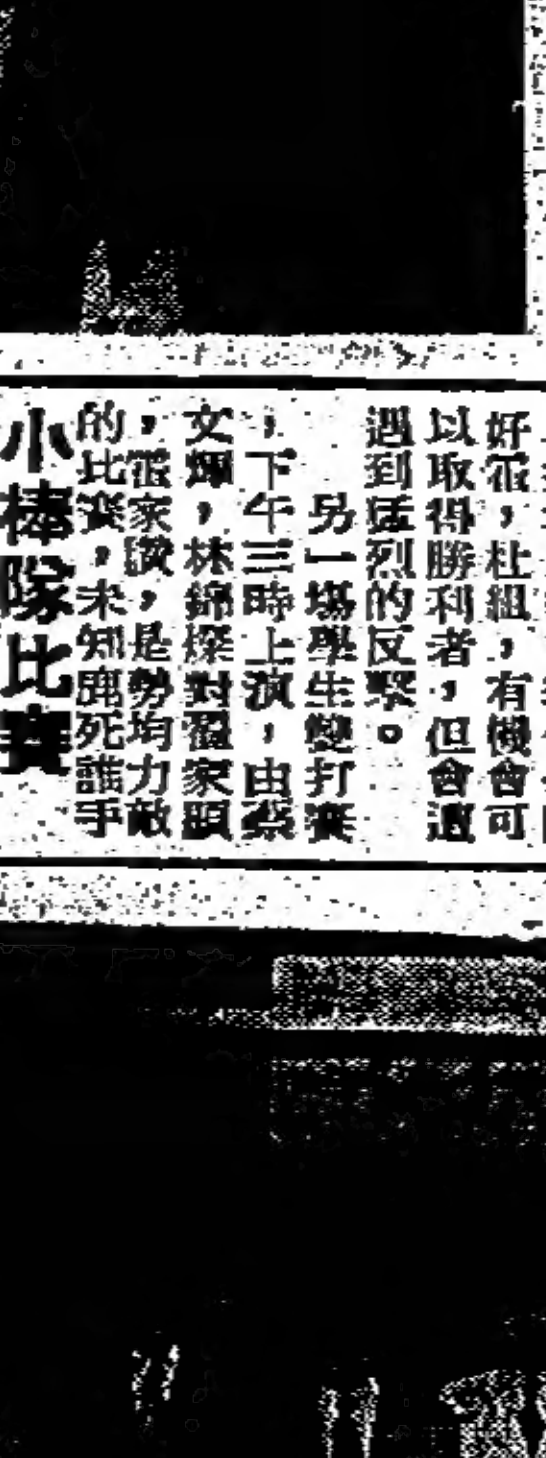 好翟,杜組,有機會可
以取得勝利者,但會遭
遇到猛烈的反擊。
另一場學生雙打賽
,下午三時上演,由蔡
文輝,林錦燦對翟家
,翟家讚,是勢均力敵
的比賽,未知鹿死誰手
小棒隊比賽